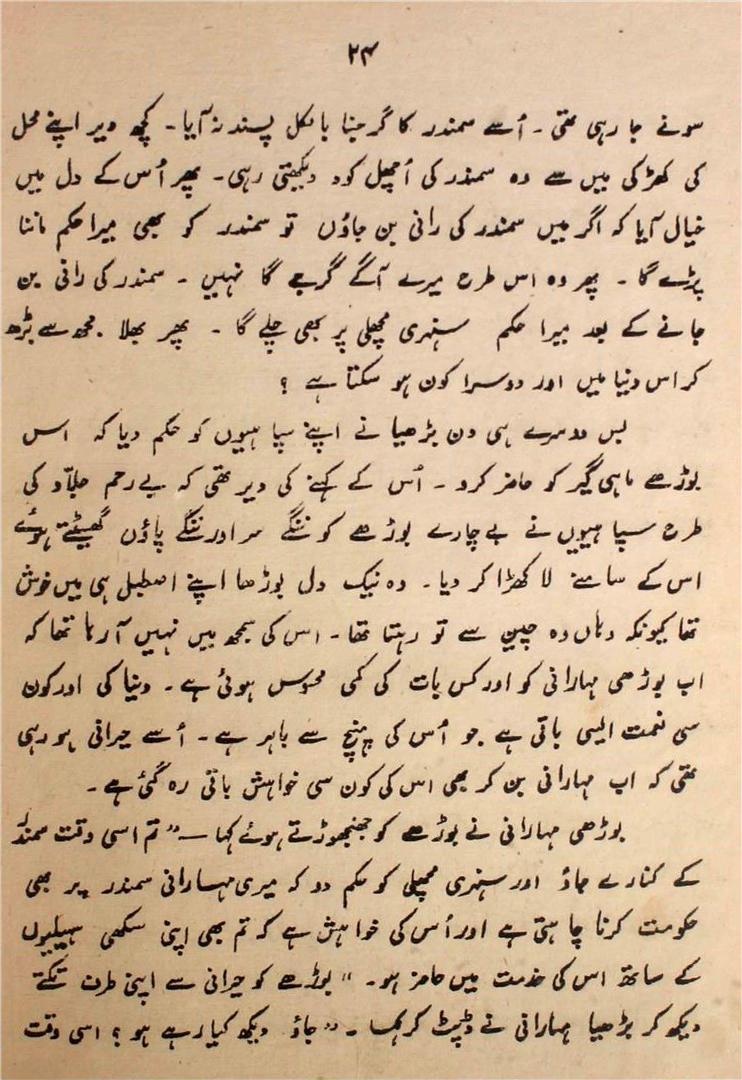 ۲۴
سونے جا رہی تھی ۔ اُسے سمندر کا گرجنا بالکل پسند نہ آیا ۔ کچھ دیر اپنے محل
کی کھڑکی میں سے وہ سمندر کی اُچھل کود دیکھتی رہی ۔ پھر اُس کے دل میں
خیال آیا کہ اگر میں سمندر کی رانی بن جاؤں تو سمندر کو بھی میرا حکم ماننا
پڑے گا ۔ پھر وہ اس طرح میرے آگے گرجے گا نہیں ۔ سمندر کی رانی بن
جانے کے بعد میرا حکم سنہری مچھلی پر بھی چلے گا ۔ پھر بھلا مجھ سے بڑھ
کر اس دنیا میں اور دوسرا کون ہو سکتا ہے ؟
بس دوسرے ہی دن بڑھیا نے اپنے سپاہیوں کو حکم دیا کہ اس
بوڑھے ماہی گیر کو حاضر کرو ۔ اُس کے کہنے کی دیر تھی کہ بے رحم جلّاد کی
طرح سپاہیوں نے بے چارے بوڑھے کو ننگے سر اور ننگے پاؤں گھسیٹتے ہوئے
اس کے سامنے لا کھڑا کر دیا ۔ وہ نیک دل بوڑھا اپنے اصطبل ہی میں خوش
تھا کیونکہ وہاں وہ چین سے تو رہتا تھا ۔ اس کی سمجھ میں نہیں آ رہا تھا کہ
اب بوڑھی مہارانی کو اور کس بات کی کمی محسوس ہوئی ہے ۔ دنیا کی اور کون
سی نعمت ایسی باقی ہے جو اُس کی پہنچ سے باہر ہے ۔ اُسے حیرانی ہو رہی
تھی کہ اب مہارانی بن کر بھی اس کی کون سی خواہش باقی رہ گئی ہے ۔
بوڑھی مہارانی نے بوڑھے کو جھنجھوڑتے ہوئے کہا — ” تم اسی وقت سمندر
کے کنارے جاؤ اور سنہری مچھلی کو حکم دو کہ میری مہارانی سمندر پر بھی
حکومت کرنا چاہتی ہے اور اُس کی خواہش ہے کہ تم بھی اپنی سکھی سہیلیوں
کے ساتھ اس کی خدمت میں حاضر ہو ۔ “ بوڑھے کو حیرانی سے اپنی طرف تکتے
دیکھ کر بڑھیا مہارانی نے ڈپٹ کر کہا ۔ ” جاؤ دیکھ کیا رہے ہو ؟ اسی وقت